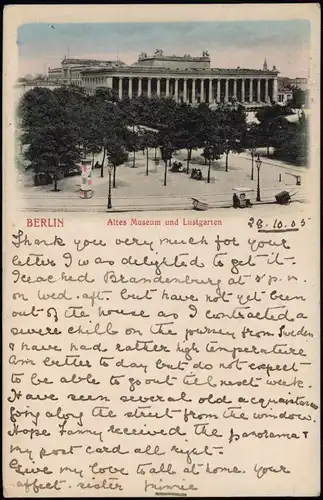 BERLIN Altes Museum und Lustgarten 28.10.05
Thank you very much for your
letter I was delighted to get it-
I reached Brandenburg at 8 p.m.
on Wed. aft. but have not yet been
out of the house as I contracted a
severe chill on the journey from Sweden
& have had rather high temperature
Am better to day but do not expect
to be able to go out till next week.
Have seen several old acquaintances
going along the street from the window.
Hope Fanny received the panorama &
my post card all right-
Give my love to all at home. your
affect. sister Minnie